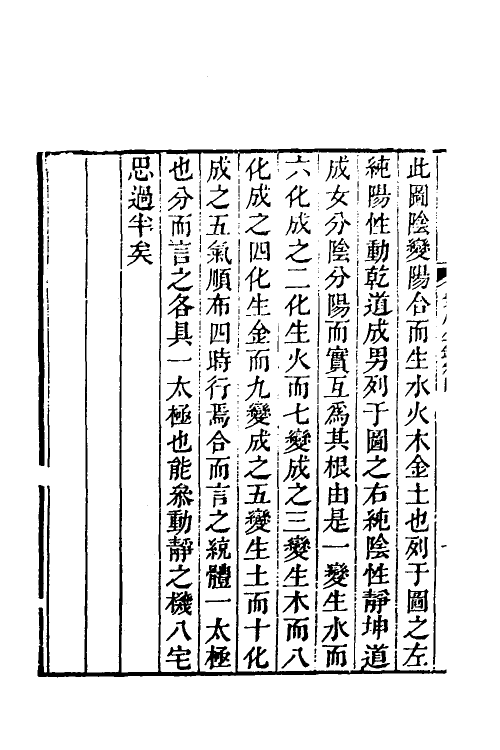 此圖陰變陽合而生水火木金土也列于圖之左
純陽性動乾道成男列于圖之右純陰性靜坤道
成女分陰分陽而實互為其根由是一變生水而
六化成之二化生火而七變成之三變生木而八
化成之四化生金而九變成之五變生土而十化
成之五氣順布四時行焉合而言之統體一太極
也分而言之各具一太極也能叅動靜之機八宅
思過半矣